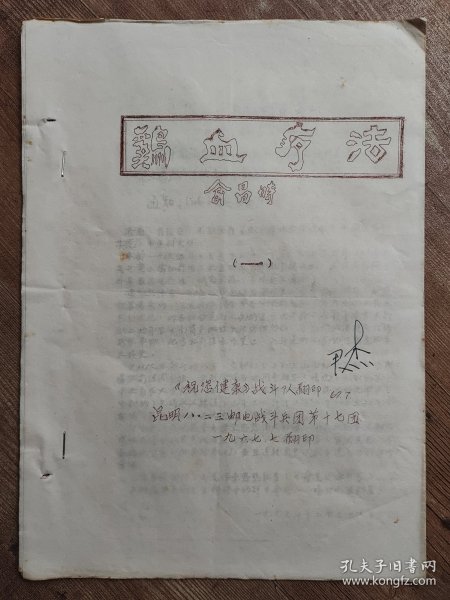 鸡血疗法
俞昌时
（一）
《祝您健康》战斗队翻印 67.7
昆明八·二三邮电战斗兵团第十七团
一九六七、七翻印
孔夫子旧书网
www.kongfz.com